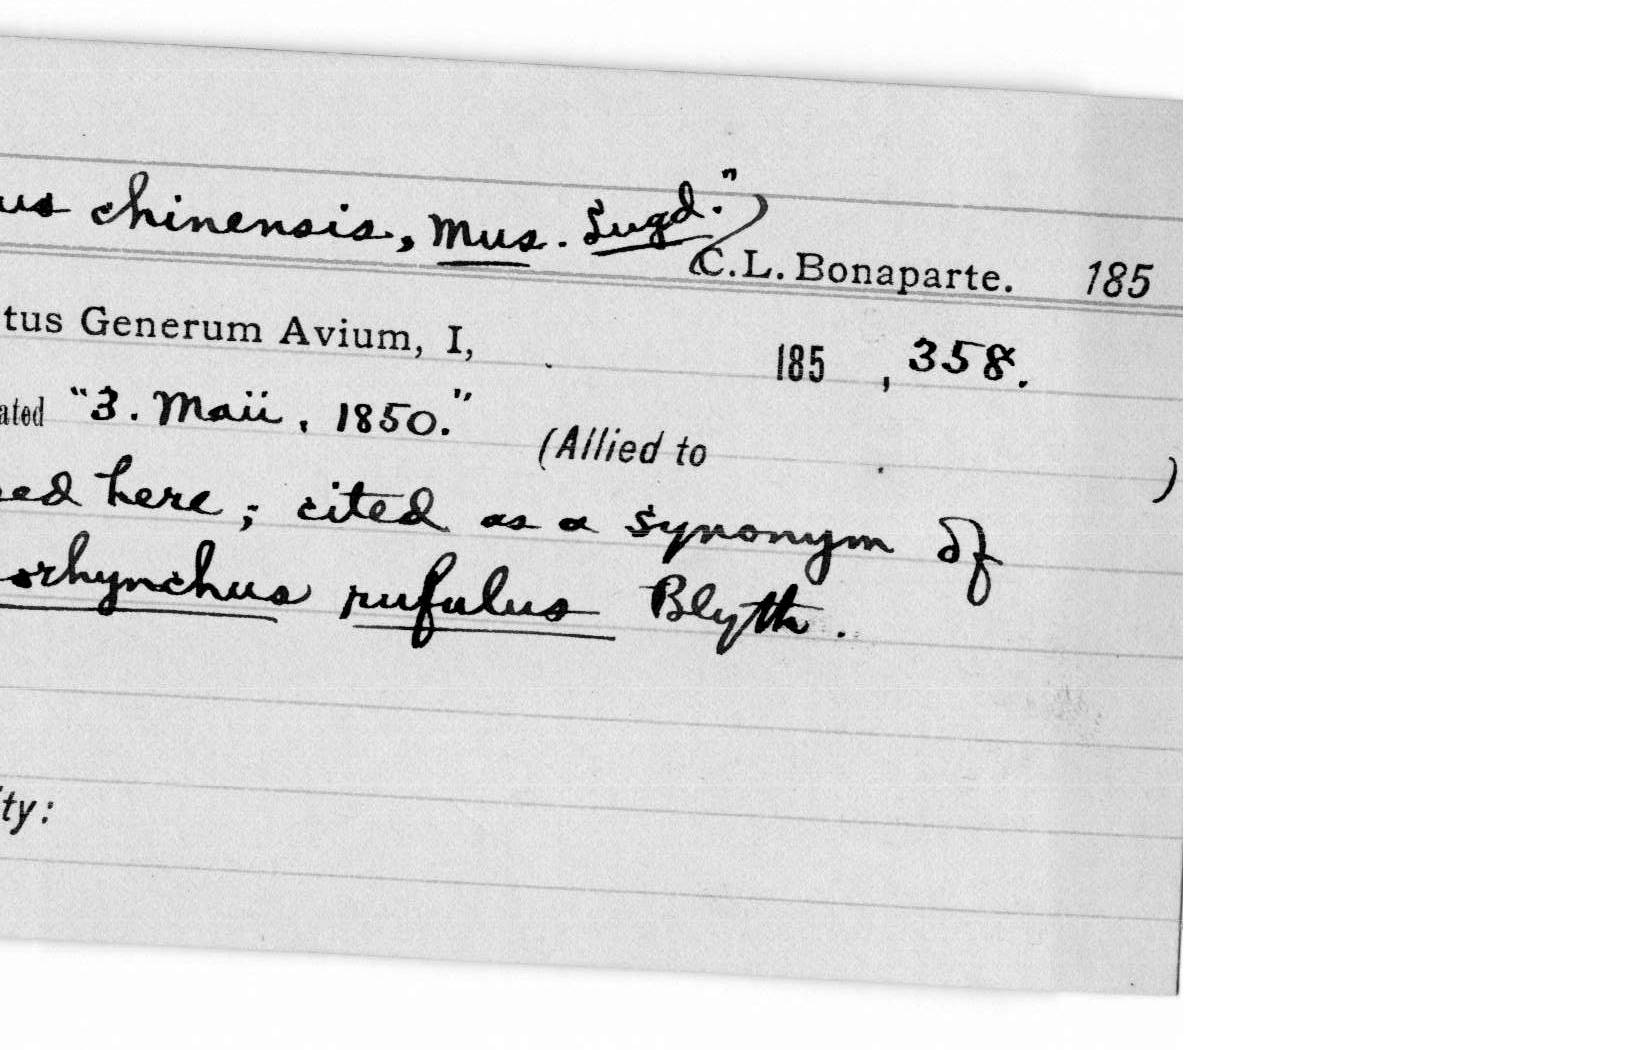 us chinensis, Mus. Lugd.")
(C.L. Bonaparte. 185
tus Generum Avium, I, 185 , 358.
ated "3. Maii, 1850."
(Allied to )
ed here; cited as a synonym of
orhynchus rufulus Blyth.
ity: